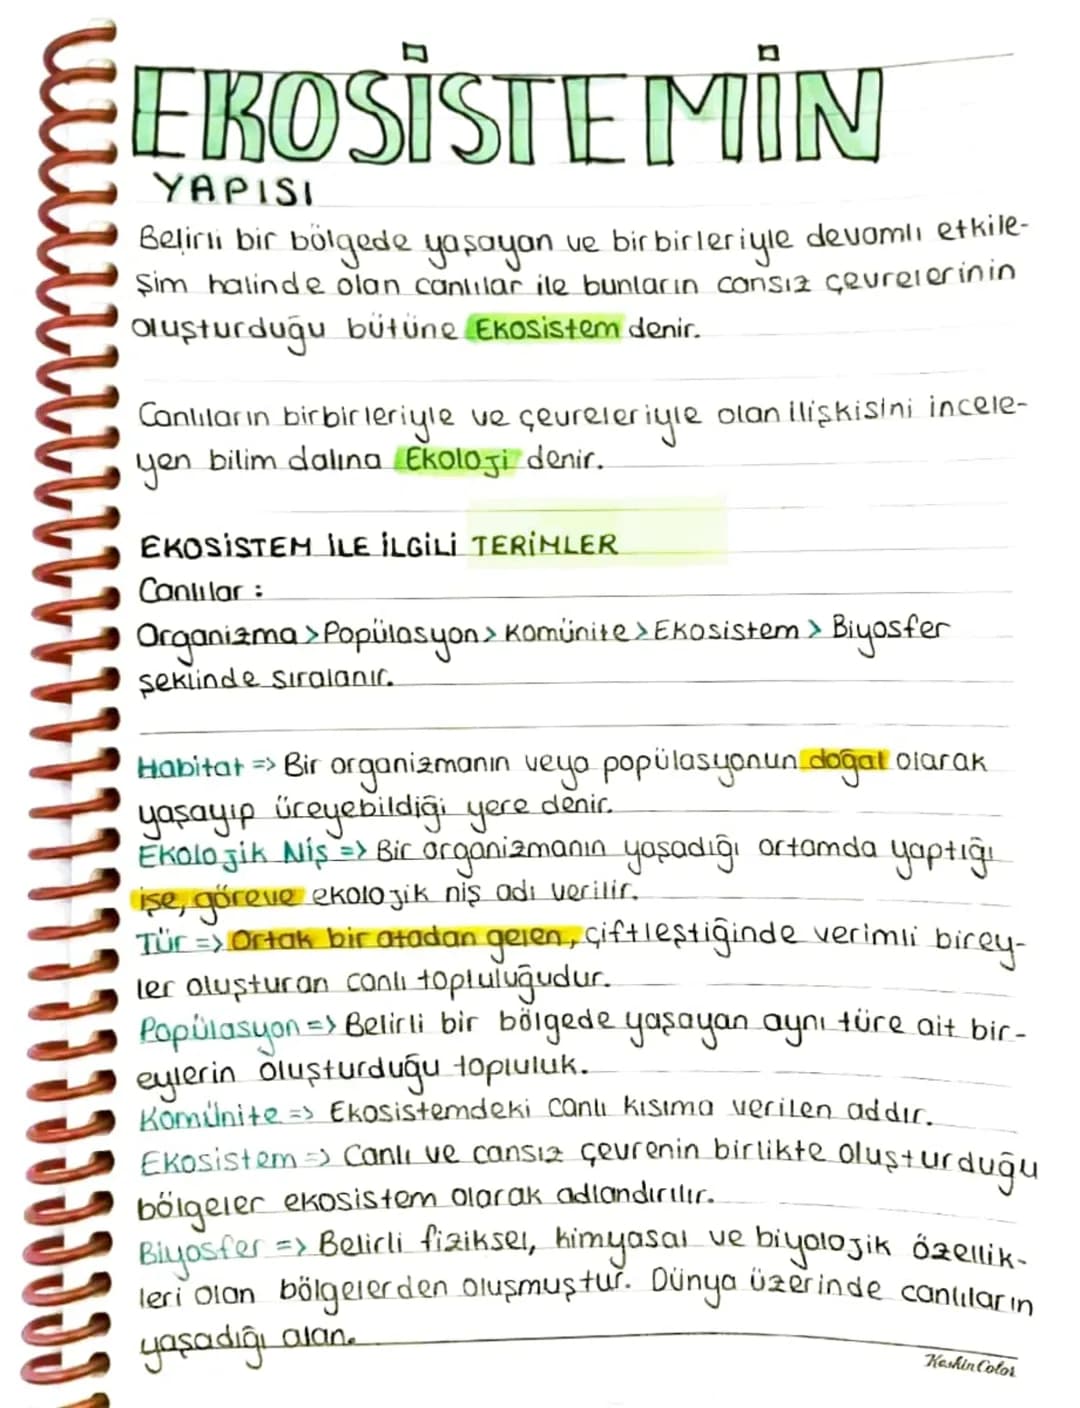 EKOSİSTEMİN
YAPISI
Belirli bir bölgede yaşayan ve birbirleriyle devamlı etkile-
şim halinde olan canlılar ile bunların cansız çevrelerinin
oluşturduğu bütüne Ekosistem denir.
Canlıların birbirleriyle ve çevreleriyle olan ilişkisini incele-
yen bilim dalına Ekoloji denir.
EKOSİSTEM İLE İLGİLİ TERİMLER
Canlılar :
Organizma > Popülasyon > Komünite > Ekosistem > Biyosfer
şeklinde sıralanır.
Habitat => Bir organizmanın veya popülasyonun doğal olarak
yaşayıp üreyebildiği yere denir.
Ekolojik Niş => Bir organizmanın yaşadığı ortamda yaptığı
işe, göreve ekolojik niş adı verilir.
Tür => Ortak bir atadan gelen, çiftleştiğinde verimli birey-
ler oluşturan canlı topluluğudur.
Popülasyon => Belirli bir bölgede yaşayan aynı türe ait bir-
eylerin oluşturduğu topluluk.
Komünite => Ekosistemdeki canlı kısıma verilen addır.
Ekosistem => Canlı ve cansız çevrenin birlikte oluşturduğu
bölgeler ekosistem olarak adlandırılır.
Biyosfer => Belirli fiziksel, kimyasal ve biyolojik özellik-
leri olan bölgelerden oluşmuştur. Dünya üzerinde canlıların
yaşadığı alan.
KeskinColor